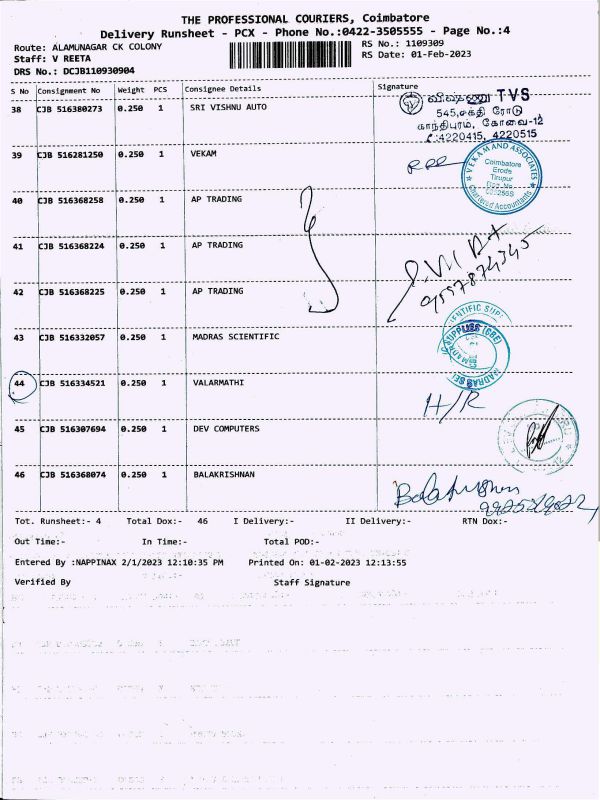 THE PROFESSIONAL COURIERS, Coimbatore
Delivery Runsheet - PCX - Phone No.:0422-3505555 - Page No.:4
Route: ALAMUNAGAR CK COLONY
RS No.: 1109309
Staff: V REETA
RS Date: 01-Feb-2023
DRS No.: DCJB110930904
S No Consignment No Weight PCS Consignee Details Signature
38 CJB 516380273 0.250 1 SRI VISHNU AUTO
விஷ்ணு TVS
545,சக்தி ரோடு
காந்திபுரம், கோவை-12
✆:4220415, 4220515
39 CJB 516281250 0.250 1 VEKAM
VEKAM AND ASSOCIATES
Coimbatore
Erode
Tirupur
Chartered Accountants
40 CJB 516368258 0.250 1 AP TRADING
41 CJB 516368224 0.250 1 AP TRADING
42 CJB 516368225 0.250 1 AP TRADING
43 CJB 516332057 0.250 1 MADRAS SCIENTIFIC
44 CJB 516334521 0.250 1 VALARMATHI
H/R
45 CJB 516307694 0.250 1 DEV COMPUTERS
46 CJB 516368074 0.250 1 BALAKRISHNAN
Tot. Runsheet:- 4 Total Dox:- 46 I Delivery:- II Delivery:- RTN Dox:-
Out Time:- In Time:- Total POD:-
Entered By :NAPPINAX 2/1/2023 12:10:35 PM Printed On: 01-02-2023 12:13:55
Verified By Staff Signature